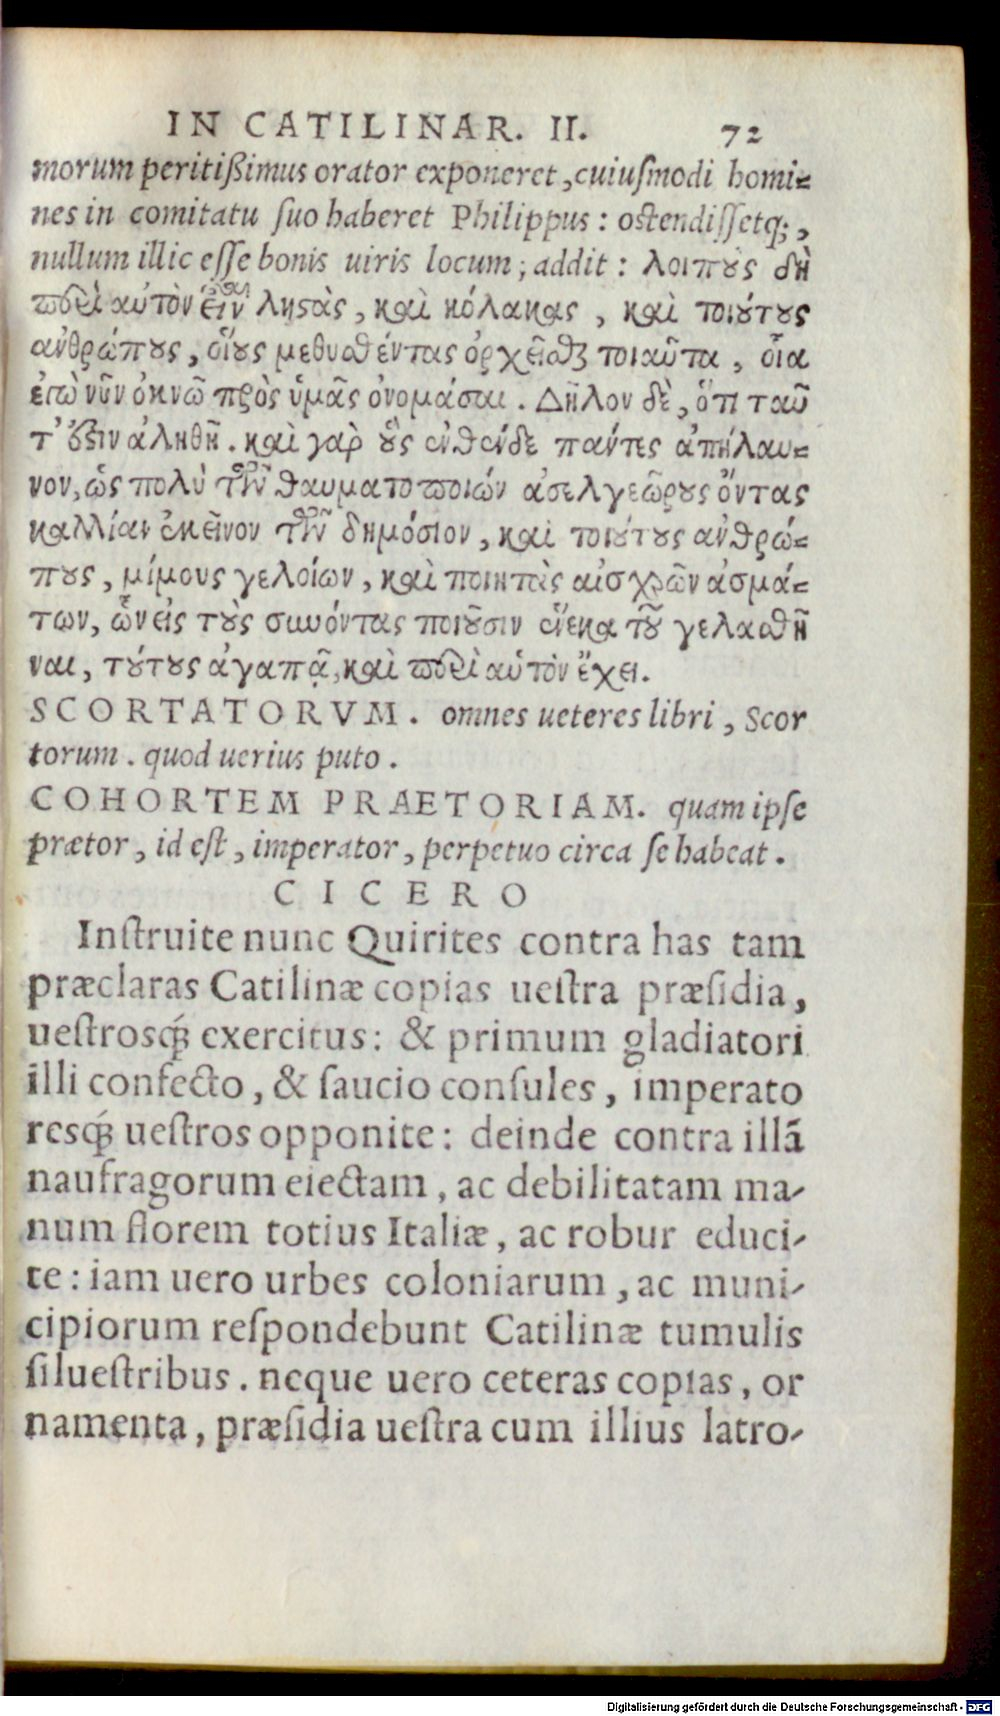 IN CATILINAR. II. 72
morum peritißimus orator exponeret, cuiuſmodi homi=
nes in comitatu ſuo haberet Philippus: oſtendiſſetq;,
nullum illic eſſe bonis uiris locum; addit: λοιποὺς δὴ
περὶ αὐτὸν εἶναι ληστὰς, καὶ κόλακας, καὶ τοιούτους
ἀνθρώπους, οἵους μεθυσθέντας ὀρχεῖσθαι τοιαῦτα, οἷα
ἐγὼ νῦν ὀκνῶ πρὸς ὑμᾶς ὀνομάσαι. Δῆλον δὲ, ὅτι ταῦ
τ' ἔστιν ἀληθῆ. καὶ γὰρ οὓς ἐνθένδε πάντες ἀπήλαυ=
νον, ὡς πολὺ τῶν θαυματοποιών ἀσελγεστέρους ὄντας
καλλίαν ἐκεῖνον τὸν δημόσιον, καὶ τοιούτους ἀνθρώ=
πους, μίμους γελοίων, καὶ ποιητὰς αἰσχρῶν ἀσμά=
των, ὧν εἰς τοὺς συνόντας ποιοῦσιν ἕνεκα τοῦ γελασθῆ
ναι, τούτους ἀγαπᾷ, καὶ περὶ αὑτὸν ἔχει.
SCORTATORVM. omnes ueteres libri, Scor
torum. quod uerius puto.
COHORTEM PRAETORIAM. quam ipſe
prætor, id eſt, imperator, perpetuo circa ſe habeat.
CICERO
Inſtruite nunc Quirites contra has tam
præclaras Catilinæ copias ueſtra præſidia,
ueſtrosq́; exercitus: & primum gladiatori
illi confecto, & ſaucio conſules, imperato
resq́; ueſtros opponite: deinde contra illã
naufragorum eiectam, ac debilitatam ma-
num florem totius Italiæ, ac robur educi-
te: iam uero urbes coloniarum, ac muni-
cipiorum reſpondebunt Catilinæ tumulis
ſilueſtribus. neque uero ceteras copias, or
namenta, præſidia ueſtra cum illius latro-
Digitalisierung gefördert durch die Deutsche Forschungsgemeinschaft - DFG